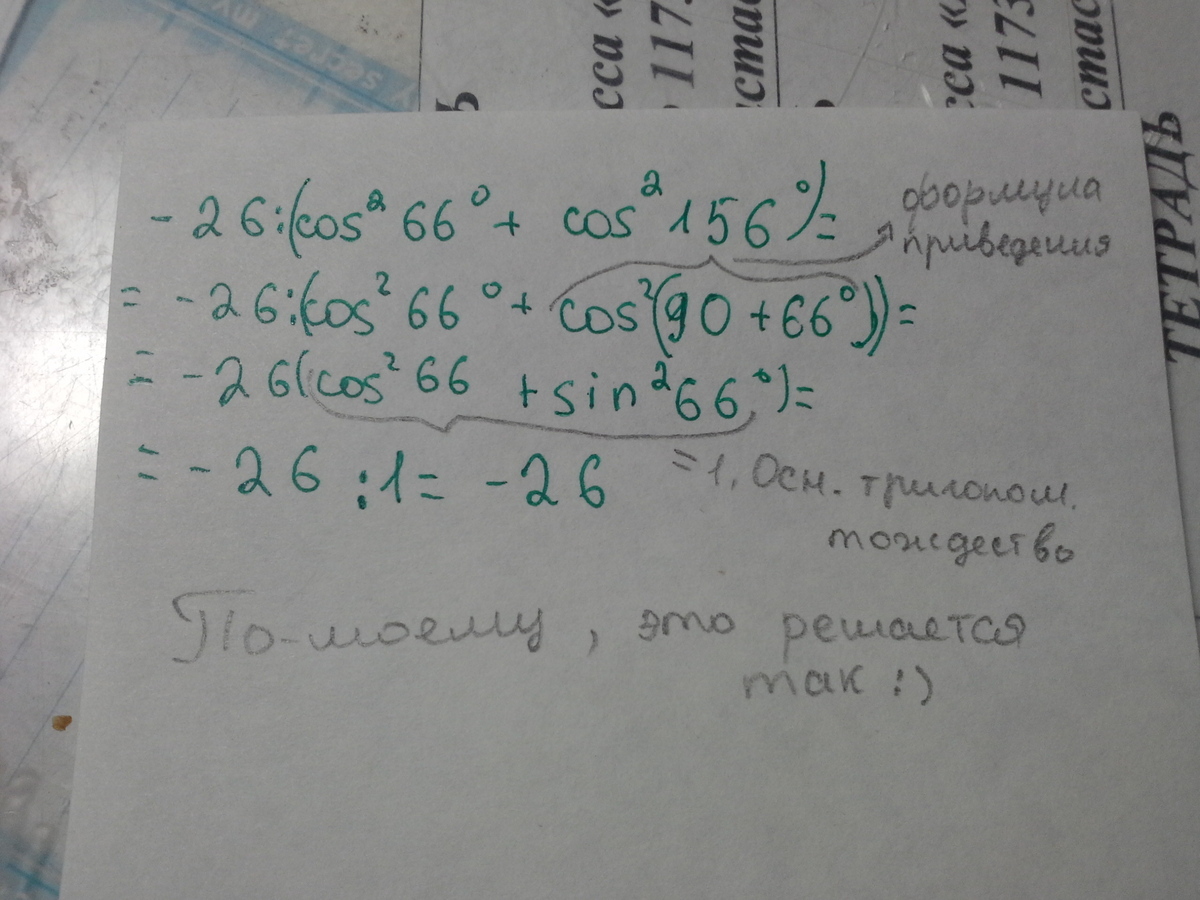 secret my
сса «
117
стас
сса «
1173
стас
ТЕТРАДЬ
- 26:(cos² 66° + cos² 156°)=
формула
приведения
= -26:(cos² 66° + cos²(90 + 66°))=
= -26(cos² 66 + sin² 66°)=
= -26 :1= -26
=1. Осн. тригоном.
тождество
По-моему, это решается
так :)